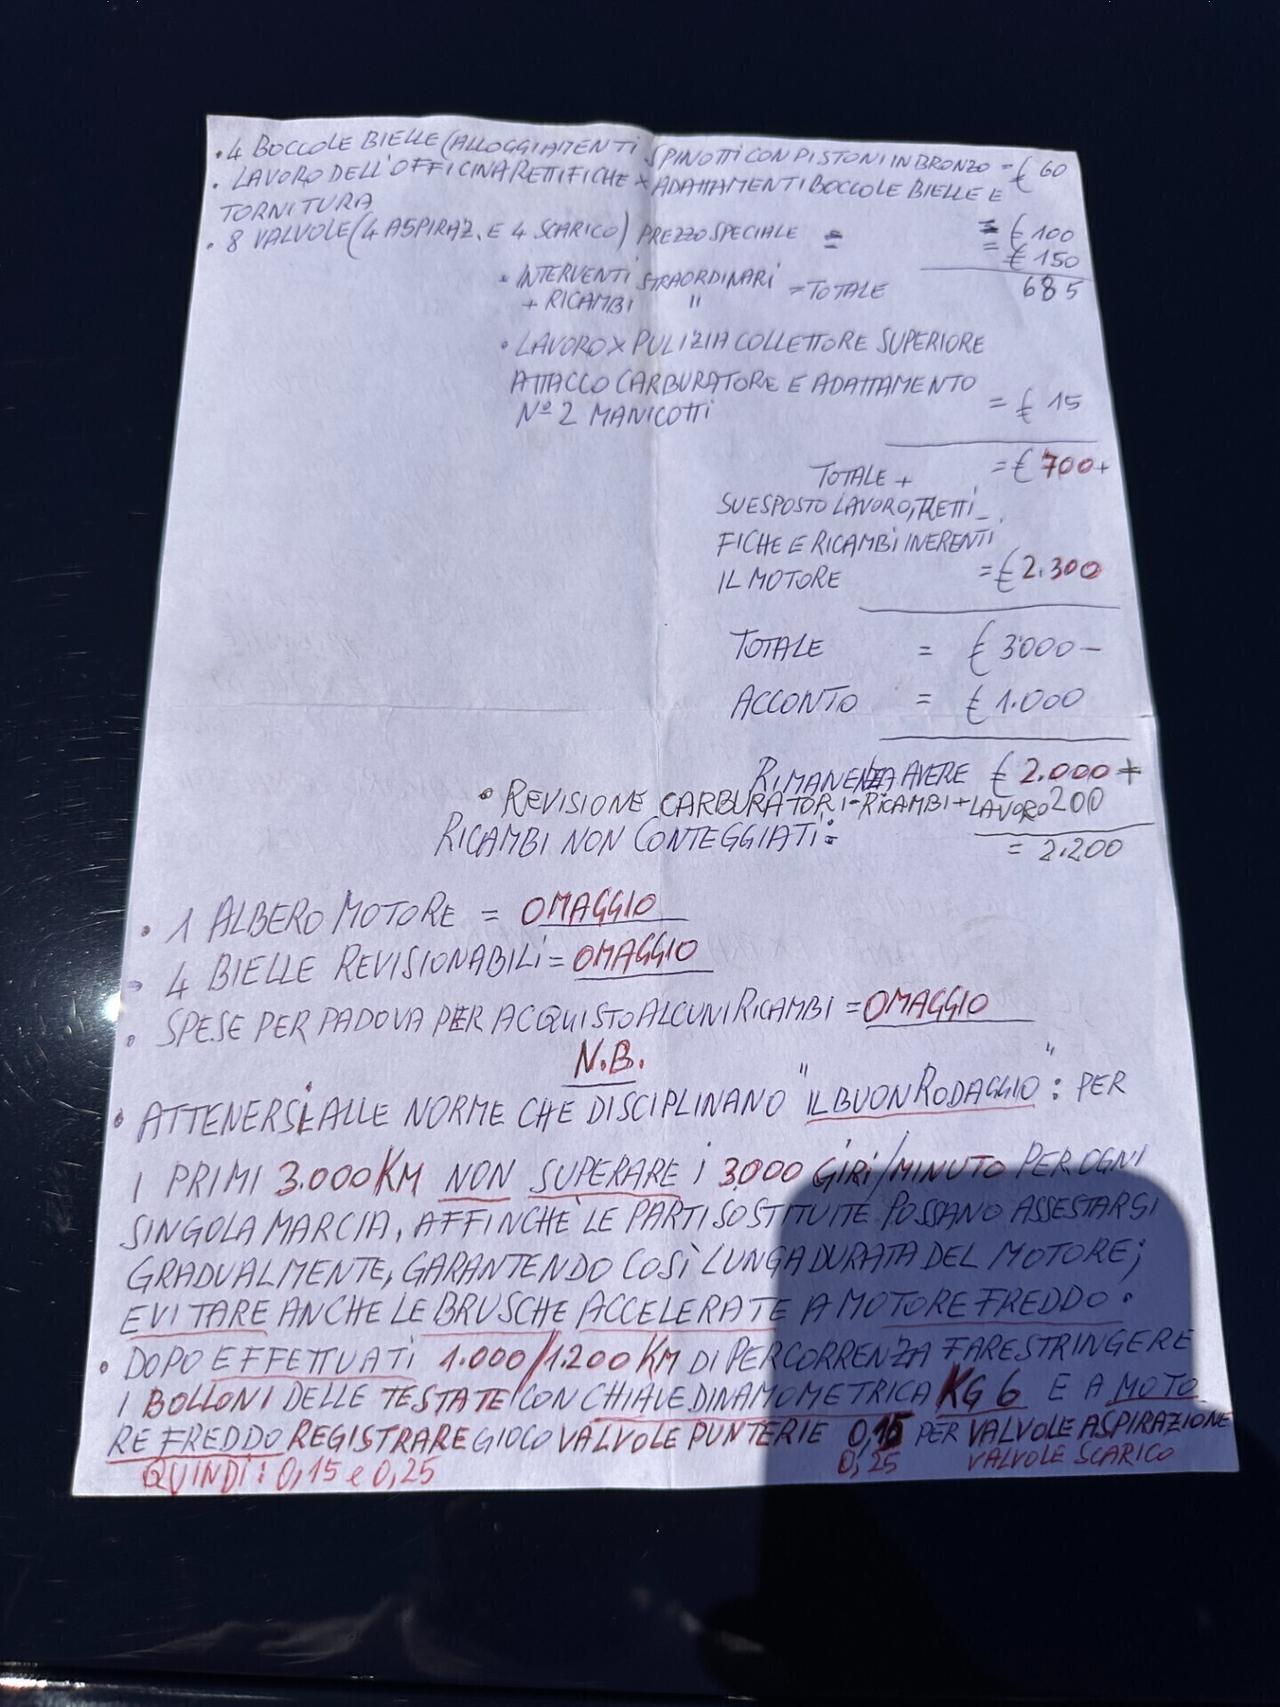 • 4 BOCCOLE BIELLE (ALLOGGIAMENTI SPINOTTI CON PISTONI IN BRONZO = € 60
• LAVORO DELL'OFFICINA RETTIFICHE X ADATTAMENTI BOCCOLE BIELLE E
TORNITURA = € 100
• 8 VALVOLE (4 ASPIRAZ. E 4 SCARICO) PREZZO SPECIALE = = € 150
• INTERVENTI STRAORDINARI = TOTALE 685
+ RICAMBI "
• LAVORO X PULIZIA COLLETTORE SUPERIORE
ATTACCO CARBURATORE E ADATTAMENTO
Nº 2 MANICOTTI = € 15
TOTALE + = € 700+
SUESPOSTO LAVORO, RETTI_
FICHE E RICAMBI INERENTI
IL MOTORE = € 2.300
TOTALE = € 3000 -
ACCONTO = € 1.000
RIMANENZA AVERE € 2.000 +
• REVISIONE CARBURATORI - RICAMBI + LAVORO 200
RICAMBI NON CONTEGGIATI: = 2.200
• 1 ALBERO MOTORE = OMAGGIO
- 4 BIELLE REVISIONABILI = OMAGGIO
• SPESE PER PADOVA PER ACQUISTO ALCUNI RICAMBI = OMAGGIO
N.B.
• ATTENERSI ALLE NORME CHE DISCIPLINANO "IL BUON RODAGGIO": PER
I PRIMI 3.000 KM NON SUPERARE i 3000 GIRI/MINUTO PER OGNI
SINGOLA MARCIA, AFFINCHÈ LE PARTI SOSTITUITE POSSANO ASSESTARSI
GRADUALMENTE, GARANTENDO COSÌ LUNGA DURATA DEL MOTORE;
EVITARE ANCHE LE BRUSCHE ACCELERATE A MOTORE FREDDO.
• DOPO EFFETTUATI 1.000/1.200 KM DI PERCORRENZA FARE STRINGERE
I BOLLONI DELLE TESTATE CON CHIAVE DINAMOMETRICA KG 6 E A MOTO
RE FREDDO REGISTRARE GIOCO VALVOLE PUNTERIE 0,15 PER VALVOLE ASPIRAZIONE
QUINDI: 0,15 e 0,25 0,25 VALVOLE SCARICO